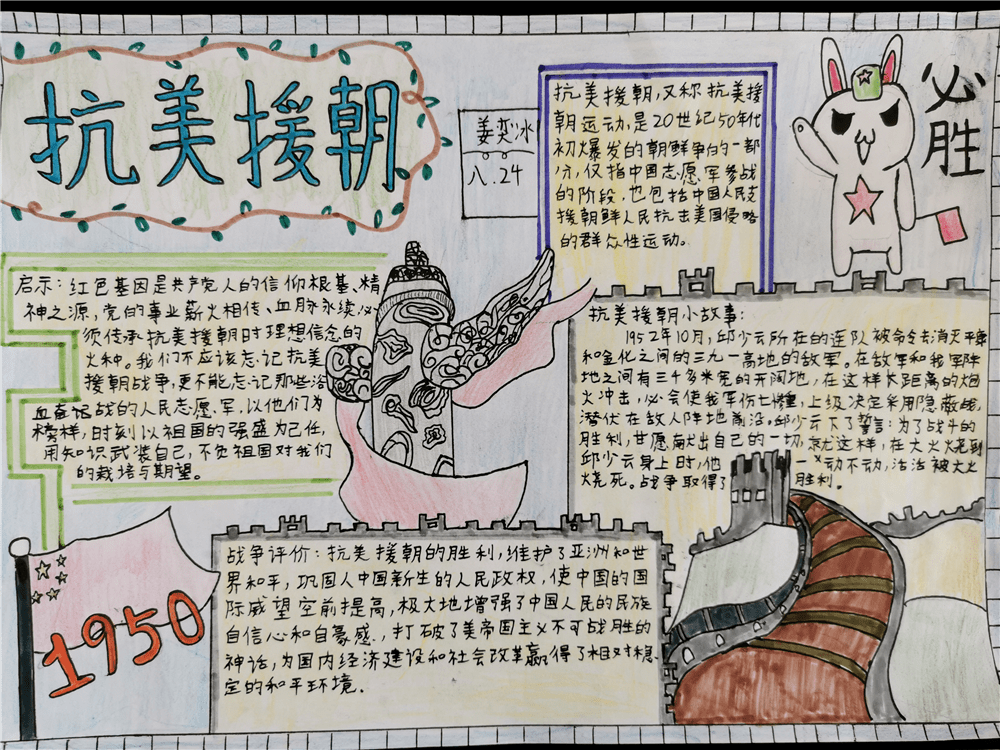 抗美援朝
姜奕冰
八.24
抗美援朝,又称抗美援
朝运动,是20世纪50年代
初爆发的朝鲜争的一部
分,仅指中国志愿军参战
的阶段,也包括中国人民支
援朝鲜人民抗击美国侵略
的群众性运动。
必
胜
启示:红色基因是共产党人的信仰根基、精
神之源,党的事业薪火相传、血脉永续,必
须传承抗美援朝时理想信念的
火种。我们不应该忘记抗美
援朝战争,更不能忘记那些浴
血奋战的人民志愿军,以他们为
榜样,时刻以祖国的强盛为己任,
用知识武装自己,不负祖国对我们
的栽培与期望。
抗美援朝小故事:
1952年10月,邱少云所在的连队被命令去消灭平康
和金化之间的三九一高地的敌军。在敌军和我军阵
地之间有三千多米宽的开阔地,在这样长距离的炮
火冲击,必会使我军伤亡惨重,上级决定采用隐蔽战,
潜伏在敌人阵地前沿。邱少云下了誓言:为了战斗的
胜利,甘愿献出自己的一切,就这样,在大火烧到
邱少云身上时,他一动不动,活活被大火
烧死。战争取得了胜利。
1950
战争评价:抗美援朝的胜利,维护了亚洲和世
界和平,巩固人中国新生的人民政权,使中国的国
际威望空前提高,极大地增强了中国人民的民族
自信心和自豪感.,打破了美帝国主义不可战胜的
神话,为国内经济建设和社会改革赢得了相对稳
定的和平环境.